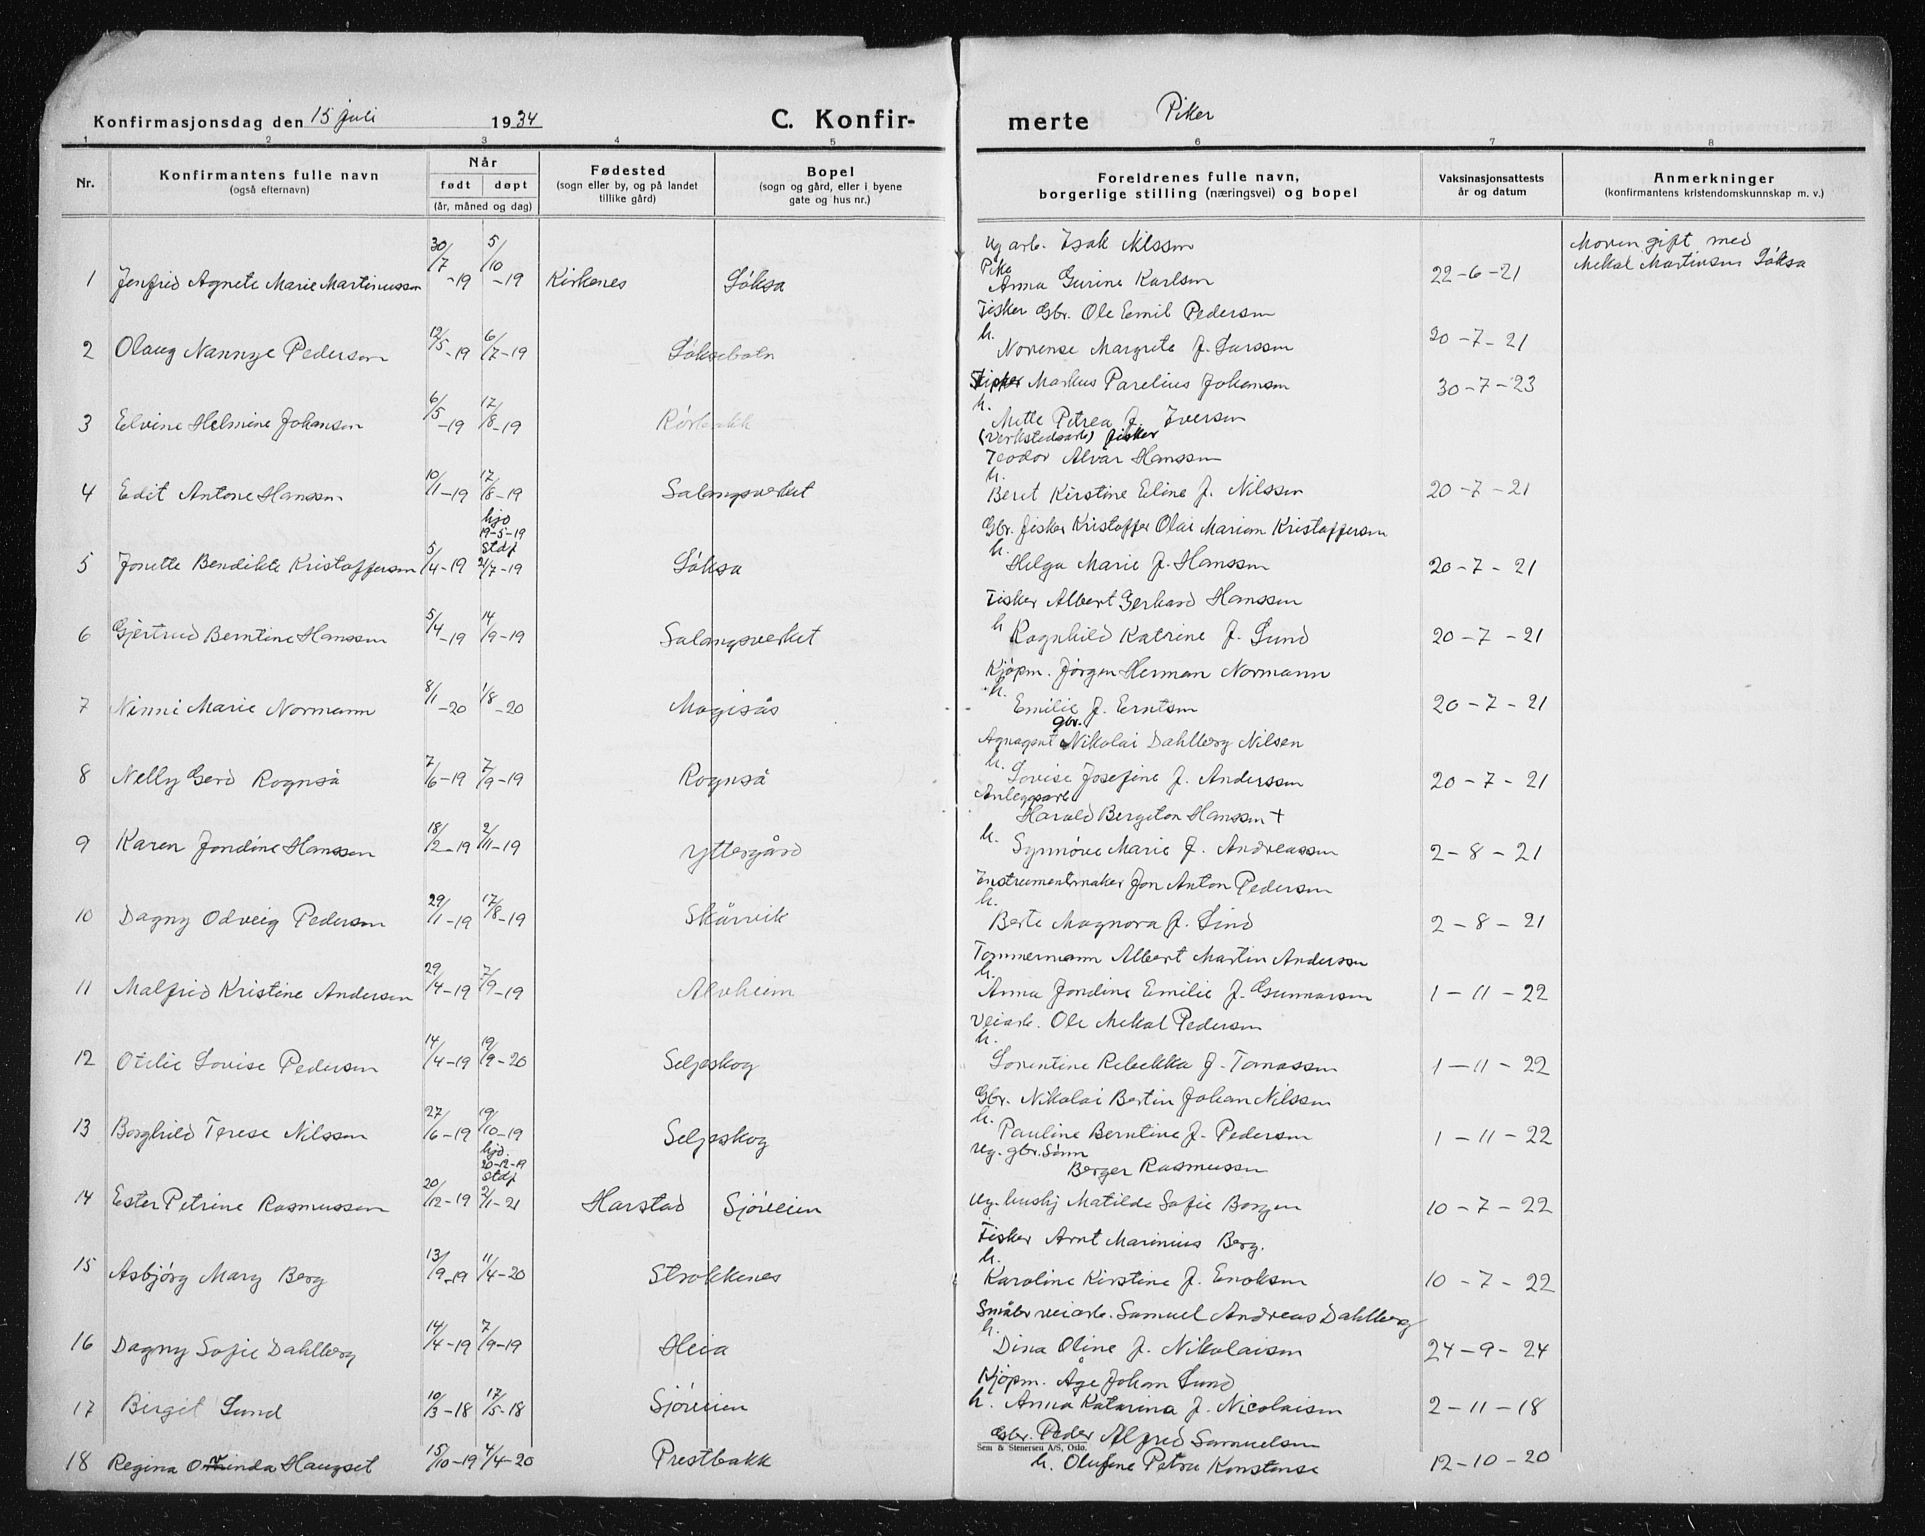 Konfirmasjonsdag den 15 juli 1934
C. Konfirmerte Piker
1 2 3 4 5 6 7 8
Nr.
Konfirmantens fulle navn
(også efternavn)
Når
født døpt
(år, måned og dag)
Fødested
(sogn eller by, og på landet
tillike gård)
Bopel
(sogn og gård, eller i byene
gate og hus nr.)
Foreldrenes fulle navn,
borgerlige stilling (næringsvei) og bopel
Vaksinasjonsattests
år og datum
Anmerkninger
(konfirmantens kristendomskunnskap m. v.)
Ug arb. Isak Nilssen
Moren gift med
Mekal Martinsen Løksa
1 Jenfrid Agnete Marie Martinussen 30/7-19 5/10-19 Kirkenes Løksa
Pike Anna Gurine Karlsen 22-6-21
Fisker Gbr. Ole Emil Pedersen
2 Olaug Nannye Pedersen 12/5-19 6/7-19 Løksebotn
h. Norense Margrete f. Larssen 20-7-21
Fisker Markus Parelius Johansen 30-7-23
3 Elvine Helmine Johansen 6/5-19 17/8-19 Rørbakk
h. Mette Petrea f. Iversen
(Verkstedsarb) fisker
Teodor Alvar Hanssen
4 Edit Antone Hanssen 10/1-19 17/8-19 Salangsverket
h. Beret Kirstine Eline f. Nilssen 20-7-21
Gbr. fisker Kristoffer Olai Mariom Kristoffersen
5 Jonette Bendikte Kristoffersen 5/4-19 hjd 19-5-19 stdf 2/7-19 Løksa
h. Helga Marie f. Hanssen 20-7-21
Fisker Albert Gerhard Hanssen
6 Gjertrud Berntine Hanssen 5/4-19 14/9-19 Salangsverket
h Ragnhild Katrine f. Lund 20-7-21
Kjøpm. Jørgen Herman Normann
7 Ninni Marie Normann 8/1-20 1/8-20 Magisås
h. Emilie f. Erntsen 20-7-21
Agnagent gbr. Nikolai Dahlberg Nilsen
8 Nelly Gerd Rognså 7/6-19 7/9-19 Rognså
h. Lovise Josefine f. Anderssen 20-7-21
Anleggsarb
Harald Bergiton Hanssen +
9 Karen Jondine Hanssen 18/2-19 2/11-19 Yttergård
h. Synnøve Marie f. Andreassen 2-8-21
Instrumentmaker Jon Anton Pedersen
10 Dagny Odveig Pedersen 29/1-19 17/8-19 Skårvik
h. Berte Magnora f. Lind 2-8-21
Tømmermann Albert Martin Andersen
11 Malfrid Kristine Andersen 29/4-19 7/9-19 Alvheim
h. Anna Jondine Emilie f. Gunnarsen 1-11-22
Veiarb. Ole Mekal Pedersen
12 Otelie Lovise Pedersen 14/4-19 19/9-20 Seljeskog
h. Lorentine Rebekka f. Tomassen 1-11-22
Gbr. Nikolai Bertin Johan Nilssen
13 Borghild Terese Nilssen 27/6-19 19/10-19 Seljeskog
h. Pauline Berntine f. Pedersen 1-11-22
Ug. gbr. sønn
Berger Rasmussen
14 Ester Petrine Rasmussen 20/12-19 hjd. 20-12-19 stdf 2/1-21 Harstad Sjøveien
Ug. hushj Matilde Sofie Borgen 10-7-22
Fisker Arnt Marinius Berg.
15 Asbjørg Mary Berg 13/9-19 11/4-20 Strokkenes
h. Karoline Kirstine f. Enoksen 10-7-22
Småbr veiarb. Samuel Andreas Dahlberg
16 Dagny Sofie Dahlberg 14/4-19 7/9-19 Heia
h. Dina Oline f. Nikolaisen 24-9-24
Kjøpm. Åge Johan Lund
17 Birgit Lund 10/3-18 17/5-18 Sjøveien
h. Anna Katarina f. Nicolaisen 2-11-18
Gbr. Peder Alfred Samuelsen
Sem & Stenersen A/S, Oslo.
18 Regina Haugset 15/10-19 4/4-20 Prestbakk
h. Olufine Petra Konstanse 12-10-20